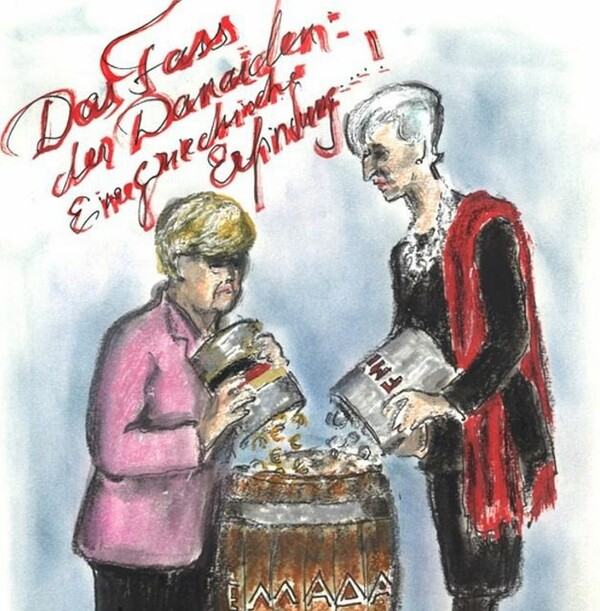 Das Fass
der Danaiden:
Eine griechische
Erfindung....!
FMI
ΕΛΛΑΔΑ